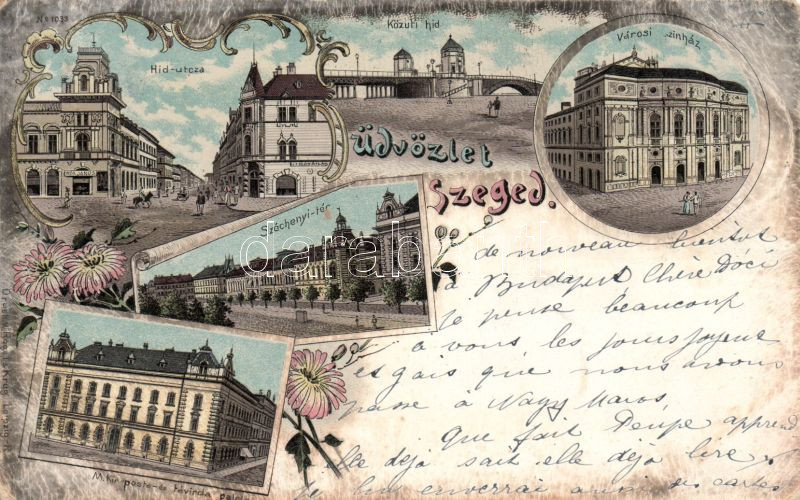 No 1033
Közuti hid
Városi szinház
Hid-utcza
Üdvözlet
Szeged.
Széchenyi-tér
darabanth
de nouveau bientot
à Budapest Chère Doci
Je pense beaucoup
à vous, les jours joyeux
et gais que nous avons
passé à Nagy Maros,
Que fait apprend
elle déjà sait elle déjà lire
Je enverrai aussi des cartes
M. kir. posta- és távirda